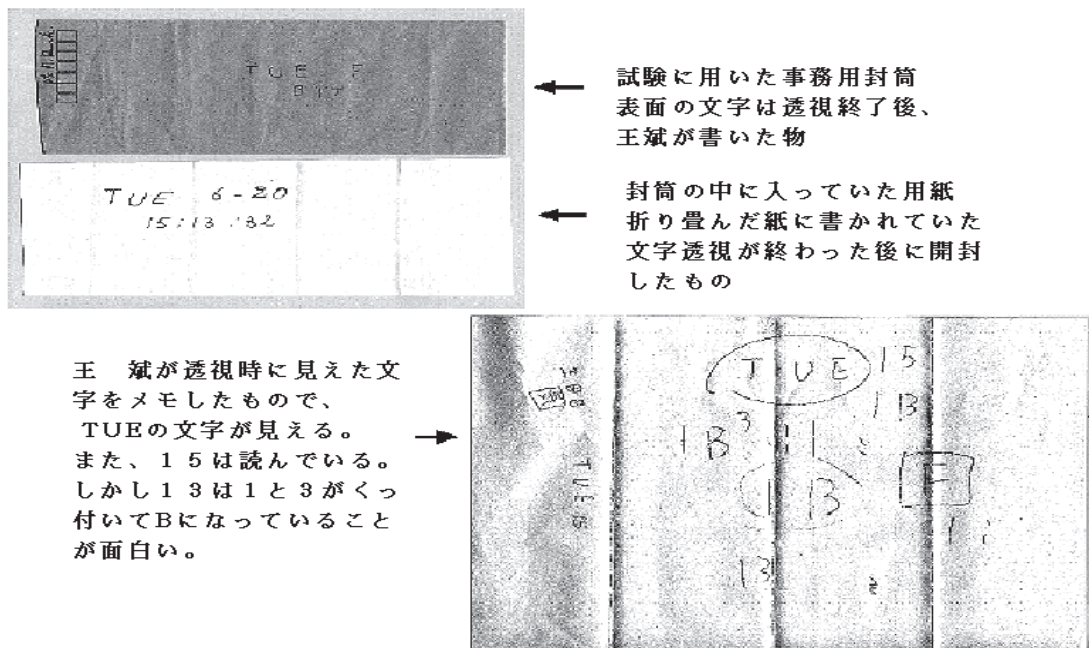 TUE E
試験に用いた事務用封筒
表面の文字は透視終了後、
王斌が書いた物
TUE 6-20
15:13:32
封筒の中に入っていた用紙
折り畳んだ紙に書かれていた
文字透視が終わった後に開封
したもの
王 斌が透視時に見えた文
字をメモしたもので、
TUEの文字が見える。
また、15は読んでいる。
しかし13は1と3がくっ
付いてBになっていること
が面白い。
TUE 15
13
1B 3 11
13
E
13
TUE 15